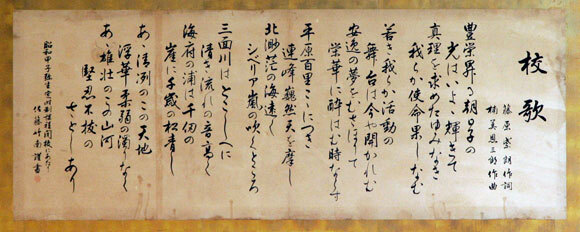 校歌
藤原 朗 作詞
楠美恩三郎 作曲
豊栄昇る朝日子の
光はいよゝ輝きて
真理を求めたゆみなき
我らが使命果しなむ
若き我らが活動の
舞台は今や開かれむ
安逸の夢をむさぼりて
栄華に酔はむ時ならず
平原百里こゝにつき
連峰巍然天を摩し
北渺茫の海遠く
シベリア嵐の吹くところ
三面川はとこしへに
清き流れの音高く
海府の浦は千仞の
崖に千歳の松青し
あゝ清冽のこの天地
浮華柔弱の濁りなく
あゝ雄壮のこの山河
堅忍不抜の
さとしあり
昭和甲子弥生定時制課程閉校にあたり
佐藤竹南謹書